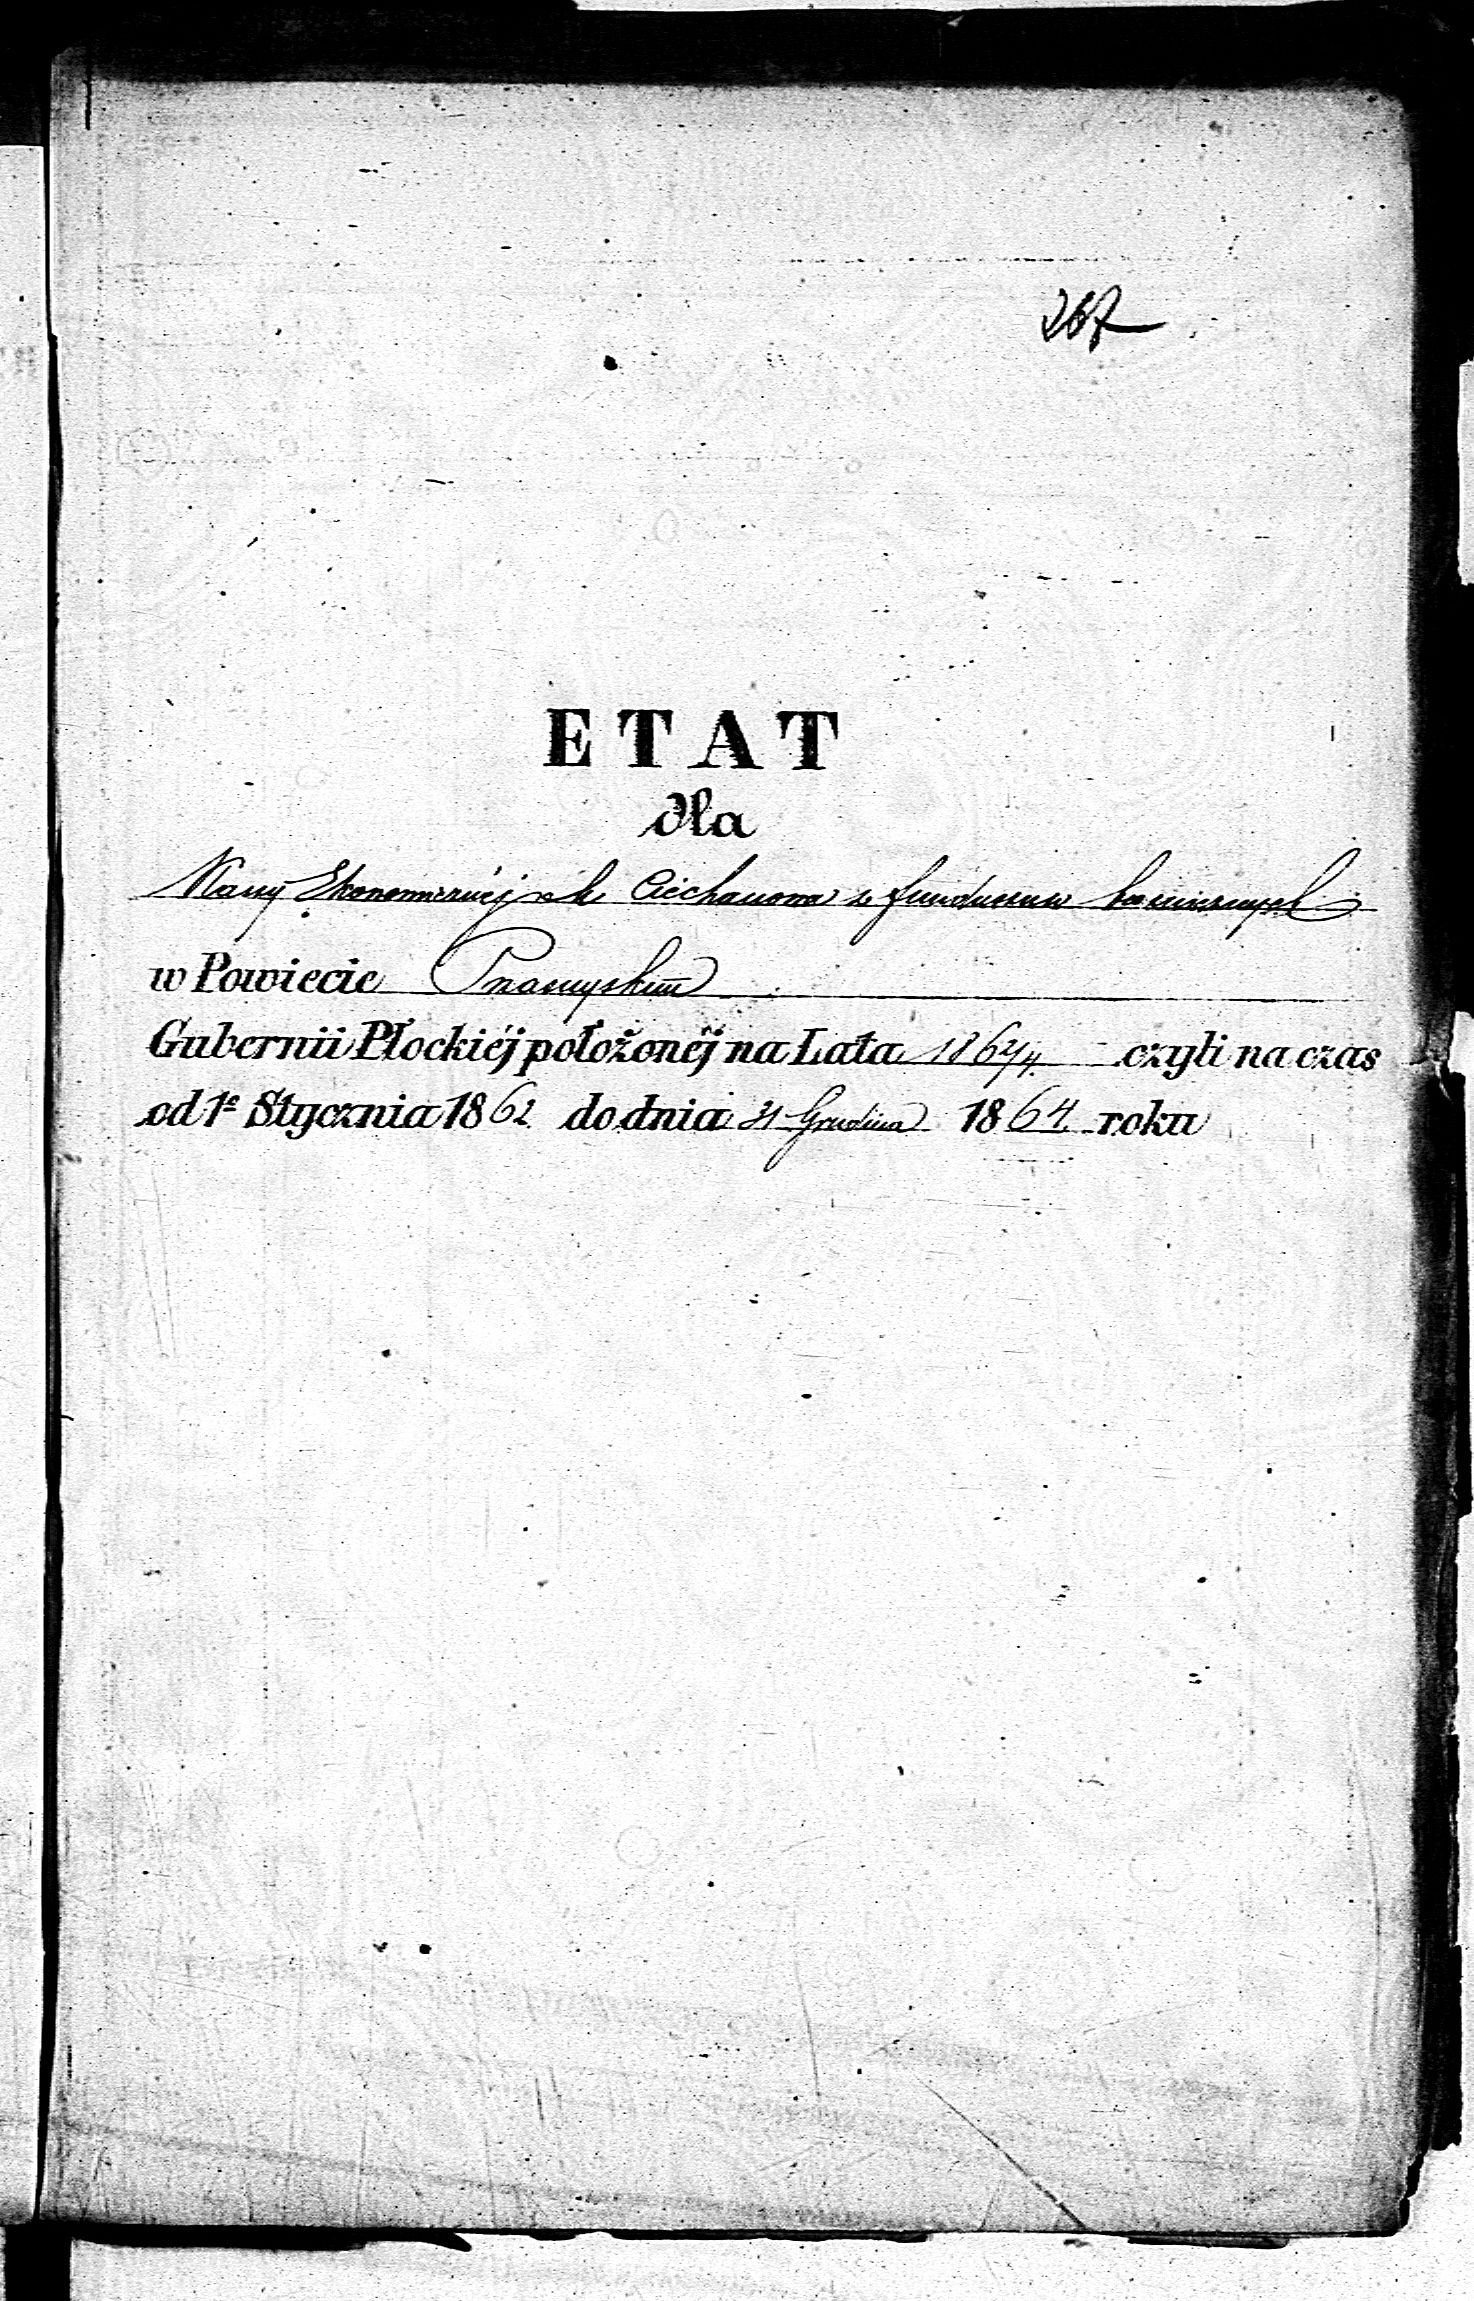 267
ETAT
dla
Kassy Ekonomicznej m. Ciechanowa z funduszów
w Powiecie Przasnyskim
Gubernii Płockiéj położonéj na Lata 1862/4 czyli na czas
od 1º Stycznia 1862 do dnia 31 Grudnia 1864 roku